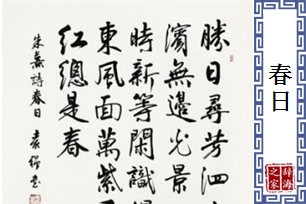 勝日尋芳泗
濱無邊光景
時新等閑識
東風面萬紫
紅總是春
朱熹詩春日
春日
辞海
之家